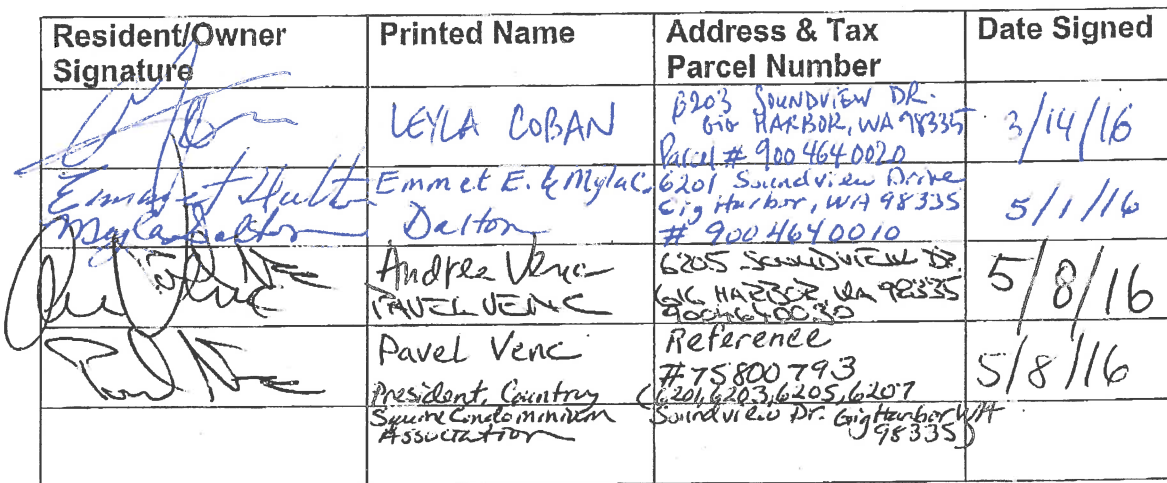 Resident/Owner
Signature
Printed Name
Address & Tax
Parcel Number
Date Signed
LEYLA COBAN
6203 SOUNDVIEW DR.
GIG HARBOR, WA 98335
Parcel # 9004640020
3/14/16
Emmet Dalton
Myla Dalton
Emmet E. & Myla C.
Dalton
6201 Soundview Drive
Gig Harbor, WA 98335
# 9004640010
5/1/16
Andrea Venc
PAVEL VENC
6205 SOUNDVIEW DR.
GIG HARBOR, WA 98335
9004640030
5/8/16
Pavel Venc
President, Country
Square Condominium
Association
Reference
#75800793
(6201,6203,6205,6207
Soundview Dr. Gig Harbor WA
98335)
5/8/16